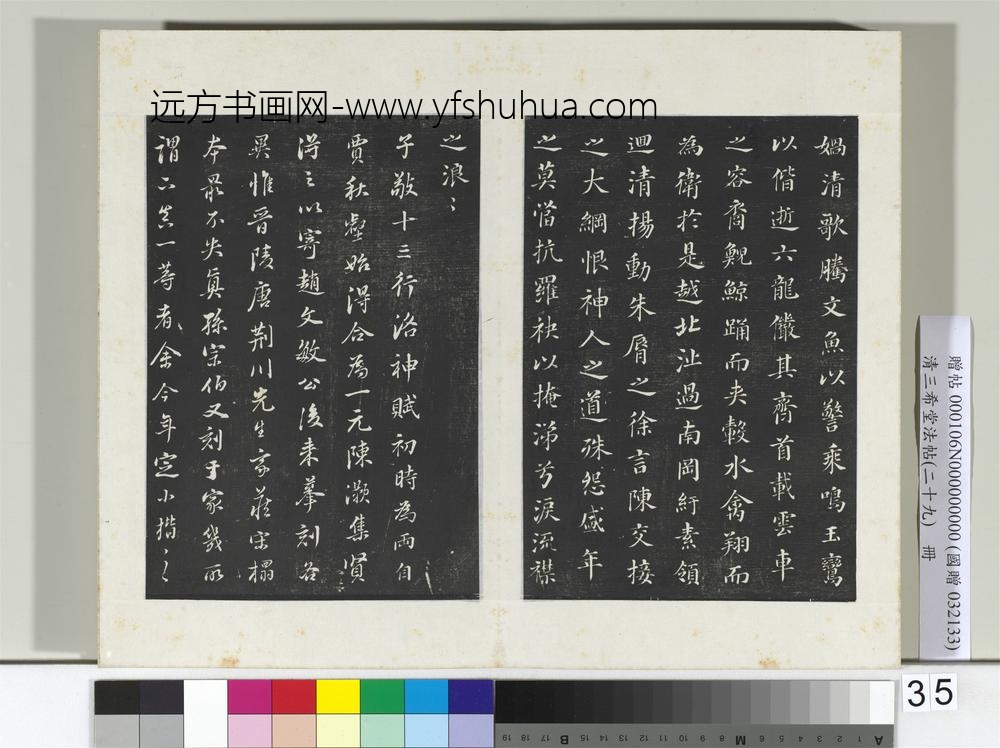 远方书画网-www.yfshuhua.com
媧清歌騰文魚以警乘鳴玉鸞
以偕逝六龍儼其齊首載雲車
之容裔鯢鯨踊而夾轂水禽翔而
為衛於是越北沚過南岡紆素領
迴清揚動朱脣之徐言陳交接
之大綱恨神人之道殊怨盛年
之莫當抗羅袂以掩涕兮淚流襟
之浪〻
子敬十三行洛神賦初時為兩自
賈秋壑始得合為一元陳灝集賢
得之以寄趙文敏公後来摹刻各
異惟晉陵唐荆川先生家藏宋搨
本最不失真孫宗伯又刻于家幾所
謂下真一等者余今年定小揩〻
贈帖 000106N000000000 (國贈 032133)
清三希堂法帖(二十九) 冊
35